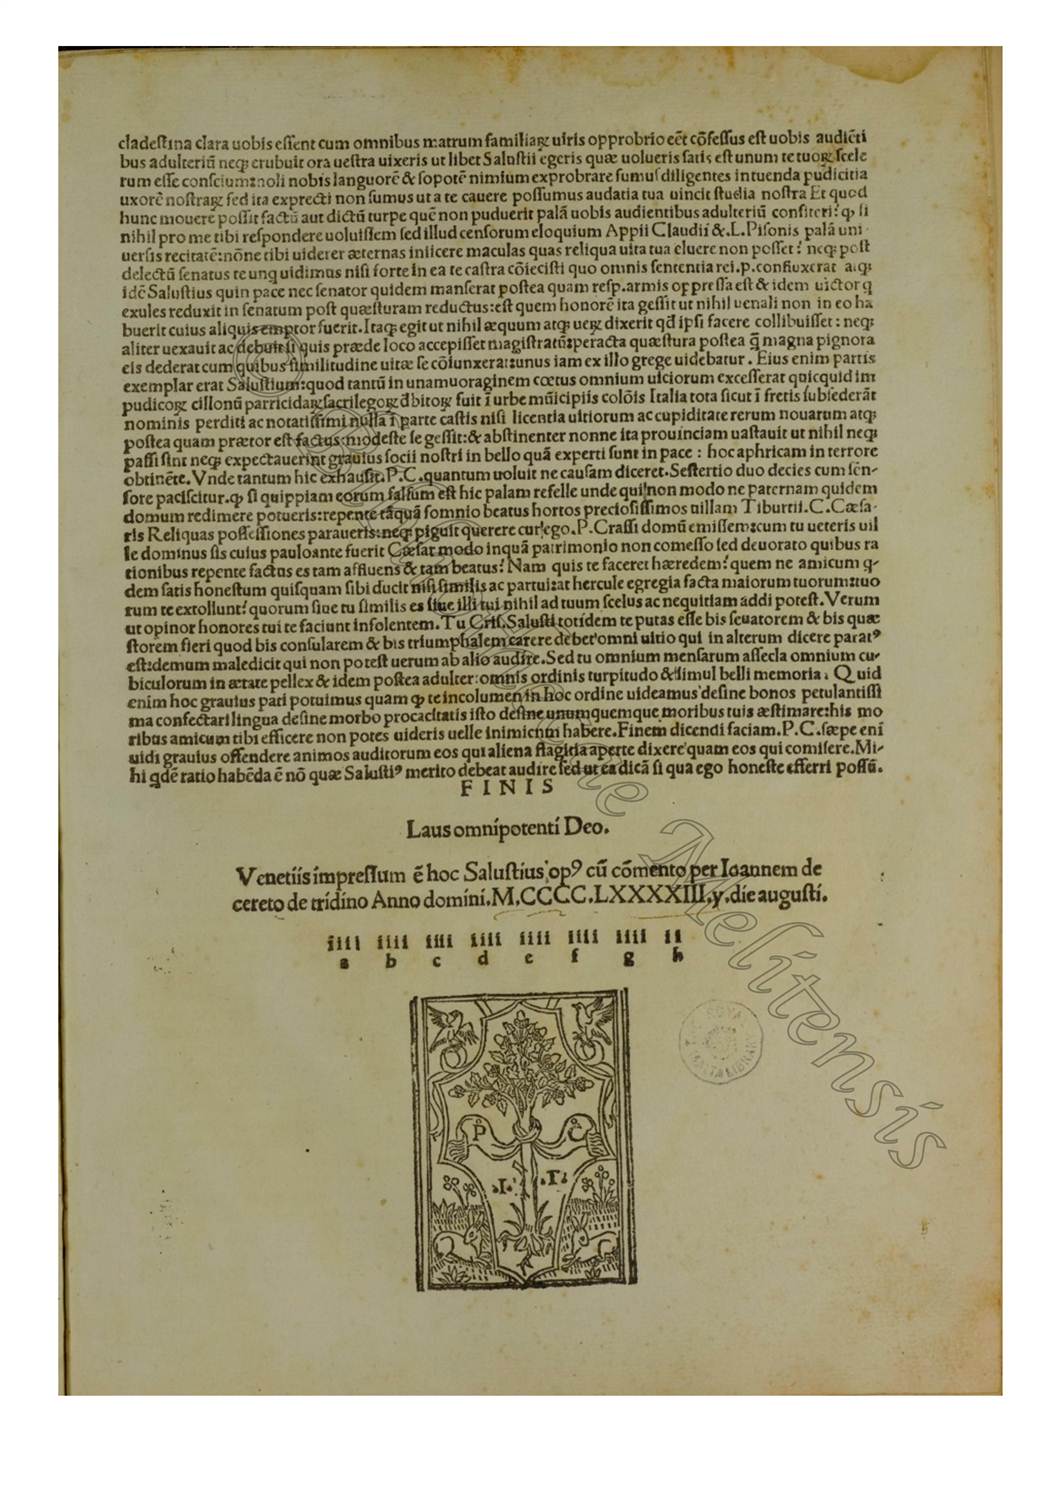 cladestina clara uobis essent cum omnibus matrum familiaꝝ uiris opprobrio eēt cōfessus est uobis audiēti
bus adulteriū neqꝫ erubuit ora uestra uixeris ut libet Salustii egeris quæ uolueris satis est unum te tuoꝝ scele
rum esse conscium:noli nobis languorē & sopotē nimium exprobrare sumus diligentes in tuenda pudicitia
uxorē nostraꝝ sed ita exprecti non sumus ut a te cauere possumus audatia tua uincit studia nostra Et quod
hunc mouere possit factū aut dictū turpe quē non puduerit palā uobis audientibus adulteriū confiteri? ꝙ si
nihil pro me tibi respondere uoluissem sed illud censorum eloquium Appii Claudii &.L.Pisonis palā uni
uersis recitatē:nōne tibi uiderer æternas iniicere maculas quas reliqua uita tua eluere non posset? neqꝫ post
delectū senatus te unq uidimus nisi forte in ea te castra cōiecisti quo omnis sententia rei.p.confluxerat atqꝫ
idē Salustius qui in pace nec senator quidem manserat postea quam resp.armis oppressa est & idem uictor q
exules reduxit in senatum post quæsturam reductus:est quem honorē ita gessit ut nihil uenali non in eo ha
buerit cuius aliquis emptor fuerit.Itaqꝫ egit ut nihil æquum atqꝫ ueꝝ dixerit qđ ipsi facere collibuisset: neqꝫ
aliter uexauit ac debuit si quis præde loco accepisset magistratū:peracta quæstura postea q̄ magna pignora
eis dederat cum quibus similitudine uitæ se cōiunxerat:unus iam ex illo grege uidebatur. Eius enim partis
exemplar erat Salustium:quod tantū in unam uoraginem cœtus omnium uiciorum excesserat quicquid im
pudicoꝝ cillonū parricidaꝝ sacrilegoꝝ đbitoꝝ fuit ī urbe mūicipiis colōis Italia tota sicut ī fretis subsederāt
nominis perditi ac notatissimi nulla ī parte castis nisi licentia uitiorum ac cupiditate rerum nouarum atqꝫ
postea quam prætor est factus:modeste se gessit:& abstinenter nonne ita prouinciam uastauit ut nihil neqꝫ
passi sint neqꝫ expectauerint grauius socii nostri in bello quā experti sunt in pace : hoc aphricam in terrore
obtinēte.Vnde tantum hic exhausit.P.C.quantum uoluit ne causam diceret.Sestertio duo decies cum sen-
sore paciscitur.ꝙ si quippiam eorum falsum est hic palam refelle unde qui non modo ne paternam quidem
domum redimere potueris:repente tāquā somnio beatus hortos preciosissimos uillam Tiburtii.C.Cæsa-
ris Reliquas possessiones paraueris:neqꝫ piguit querere cur ego.P.Crassi domū emissem:cum tu ueteris uil
le dominus sis cuius pauloante fuerit Cæsar modo inquā patrimonio non comesso sed deuorato quibus ra
tionibus repente factus es tam affluens & tam beatus? Nam quis te faceret hæredem? quem ne amicum q-
dem satis honestum quisquam sibi ducit nisi similis ac partui:at hercule egregia facta maiorum tuorum:tuo
rum te extollunt? quorum siue tu similis es siue illi tui nihil ad tuum scelus ac nequitiam addi potest.Verum
ut opinor honores tui te faciunt insolentem.Tu Cris.Salusti totidem te putas esse bis senatorem & bis quæ
storem fieri quod bis consularem & bis triumphalem carere debet omni uitio qui in alterum dicere paratꝰ
est:demum maledicit qui non potest uerum ab alio audire.Sed tu omnium mensarum assecla omnium cu-
biculorum in ætate pellex & idem postea adulter:omnis ordinis turpitudo & simul belli memoria. Quid
enim hoc grauius pati potuimus quam ꝙ te incolumen in hoc ordine uideamus desine bonos petulantissi
ma confectari lingua desine morbo procacitatis isto desine unumquemque moribus tuis æstimare:his mo
ribus amicum tibi efficere non potes uideris uelle inimicum habere.Finem dicendi faciam.P.C.sæpe enī
uidi grauius offendere animos auditorum eos qui aliena flagitia aperte dixere quam eos qui comisere.Mi-
hi qdē ratio habēda ē nō quæ Salustiꝰ merito debeat audire sed ut ea dicā si qua ego honeste efferri possū.
FINIS
Laus omnipotenti Deo.
Venetiis impressum ē hoc Salustius opꝰ cū cōmento per Ioannem de
cereto de tridino Anno domini.M.CCCC.LXXXXIII.y.die augusti.
iiii iiii iiii iiii iiii iiii iiii ii
a b c d e f g h
P C
.I. .T.
Melitensis